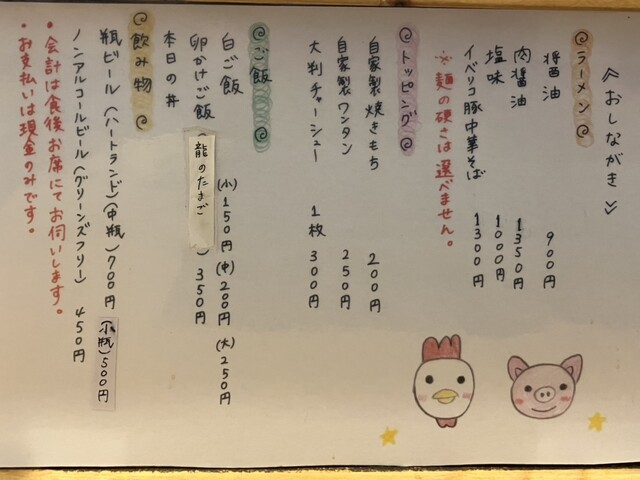 ≪おしながき≫
ラーメン
醤油 900円
肉醤油 1350円
塩味 1000円
イベリコ豚中華そば 1300円
※麺の硬さは選べません。
トッピング
自家製焼きもち 200円
自家製ワンタン 250円
大判チャーシュー 1枚 300円
ご飯
白ご飯 (小)150円 (中)200円 (大)250円
卵かけご飯(龍のたまご) 350円
本日の丼
飲み物
瓶ビール(ハートランド)(中瓶)700円 (小瓶)500円
ノンアルコールビール(グリーンズフリー) 450円
・会計は食後お席にてお伺いします。
・お支払いは現金のみです。